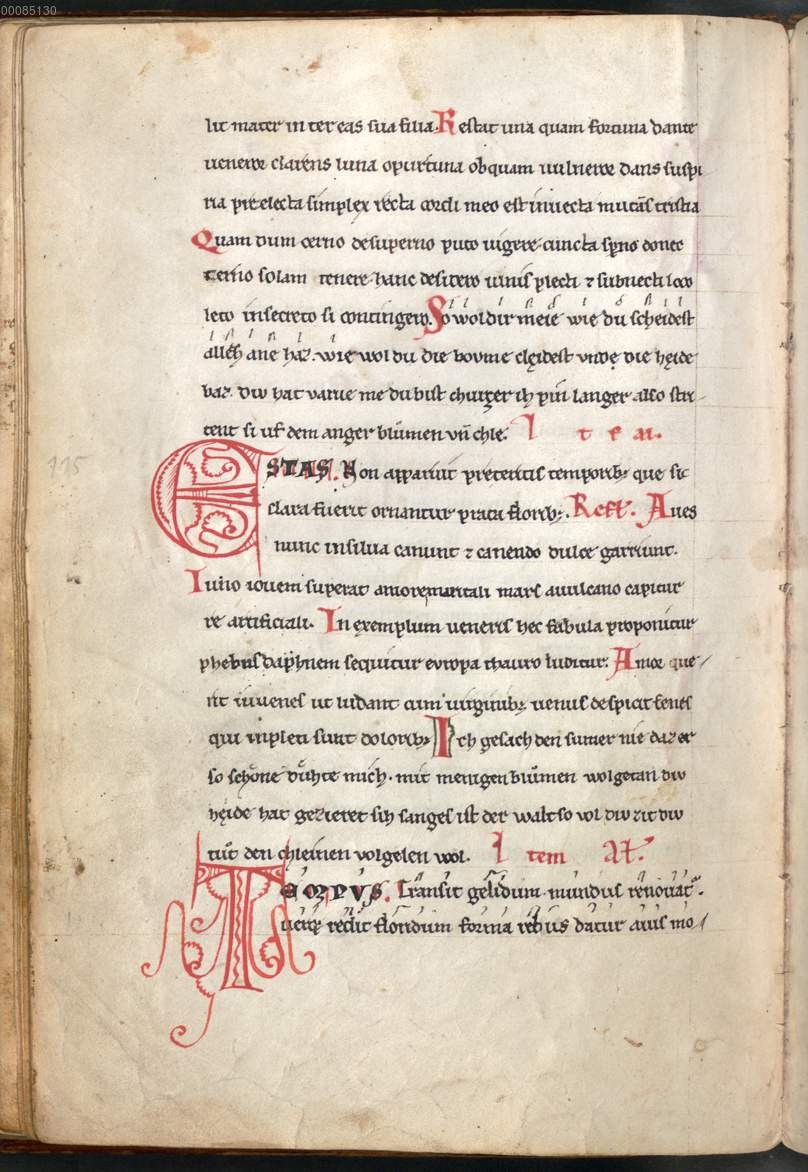 00085130
lit mater inter eas sua filia. Restat una quam fortuna dante
uenere clarens luna opurtuna ob quam uulneror dans suspi
ria preelecta simplex recta cordi meo est inuecta tristia
Quam dum cerno de superno puto uigere cuncta donec
solam tenere hanc desidero ulnis plecti ⁊ subuecti loco
leto in secreto si contingero. So wol dir meie wie du scheidest
allez ane haz. wie wol du die bovme cleidest unde die heide
baz. div hat varue me du bist churzer ih pin langer also stri
tent si uf dem anger blůmen vñ chle. I t e m.
ESTAS. Non apparuit preteritis temporibꝫ que sic
clara fuerit ornantur prata floribꝫ. Refl. Aues
nunc in silua canunt ⁊ canendo dulce garriunt.
Iuno iouem superat amore maritali mars auulcano capitur
re artificiali. In exemplum ueneris hec fabula proponitur
phebus daphnem sequitur evropa thauro luditur. Amor que
rit iuuenes ut ludant cum uirginibꝫ uenus despicit senes
qui inpleti sunt doloribꝫ Ich gesach den sumer nie daz er
so schone důhte mich. mit menigen blůmen wolgetan div
heide hat gezieret sih sanges ist der walt so vol div zit div
tůt den chleinen volgelen wol. I tem Al.
TEMPVS. Transit gelidum. mundus renouat.
uerque redit floridum forma rebus datur auis mo
115